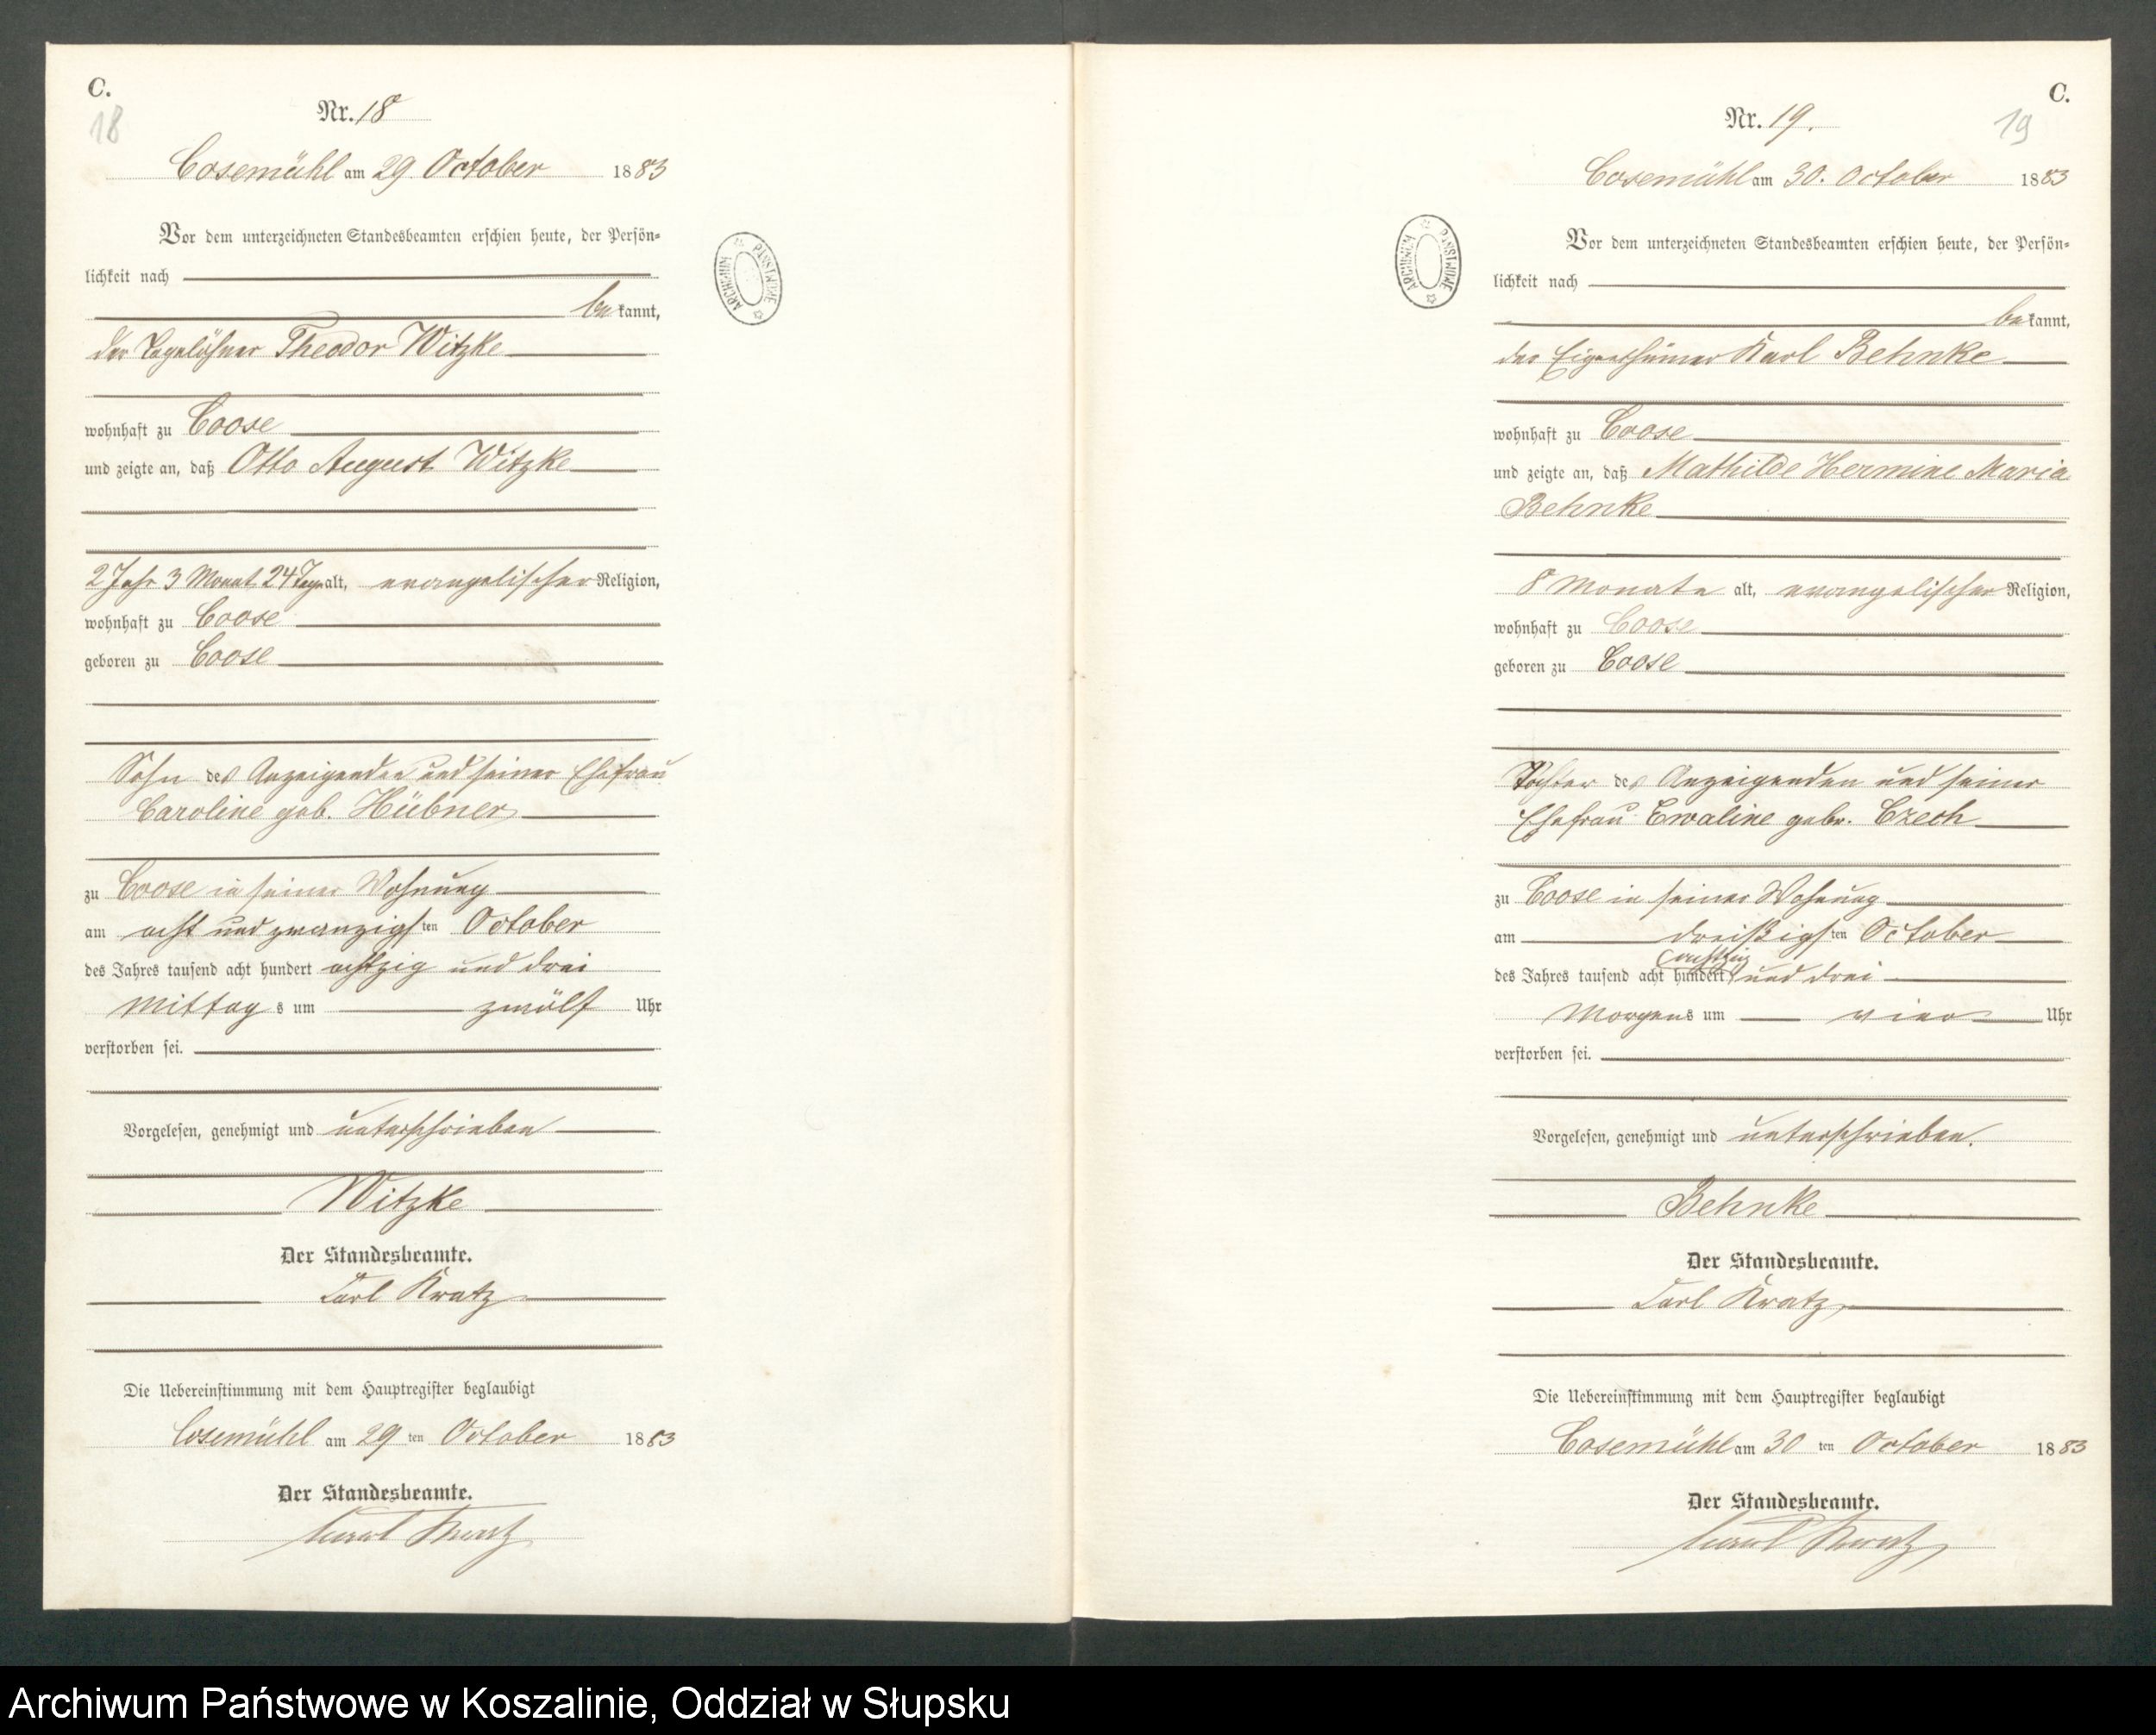 C.
18
Nr. 18
Cosemühl am 29. October 1883
Vor dem unterzeichneten Standesbeamten erschien heute, der Persön=
lichkeit nach
bekannt,
der Tagelöhner Theodor Witzke
wohnhaft zu Coose
und zeigte an, daß Otto August Witzke
2 Jahr 3 Monat 24 Tage alt, evangelischer Religion,
wohnhaft zu Coose
geboren zu Coose
Sohn des Anzeigenden und seiner Ehefrau
Caroline geb. Hübner
zu Coose in seiner Wohnung
am acht und zwanzigsten October
des Jahres tausend acht hundert achtzig und drei
Mittags um zwölf Uhr
verstorben sei.
Vorgelesen, genehmigt und unterschrieben
Witzke
Der Standesbeamte.
Carl Kratz
Die Uebereinstimmung mit dem Hauptregister beglaubigt
Cosemühl am 29 ten October 1883
Der Standesbeamte.
Carl Kratz
ARCHIWUM PAŃSTWOWE
C.
19
Nr. 19.
Cosemühl am 30. October 1883
Vor dem unterzeichneten Standesbeamten erschien heute, der Persön=
lichkeit nach
bekannt,
der Eigenthümer Karl Behnke
wohnhaft zu Coose
und zeigte an, daß Mathilde Hermine Maria
Behnke
8 Monate alt, evangelischer Religion,
wohnhaft zu Coose
geboren zu Coose
Tochter des Anzeigenden und seiner
Ehefrau Ewaline gebr. Czech
zu Coose in seiner Wohnung
am dreißigsten October
des Jahres tausend acht hundert achtzig und drei
Morgens um vier Uhr
verstorben sei.
Vorgelesen, genehmigt und unterschrieben.
Behnke
Der Standesbeamte.
Carl Kratz
Die Uebereinstimmung mit dem Hauptregister beglaubigt
Cosemühl am 30 ten October 1883
Der Standesbeamte.
Carl Kratz
ARCHIWUM PAŃSTWOWE
Archiwum Państwowe w Koszalinie, Oddział w Słupsku